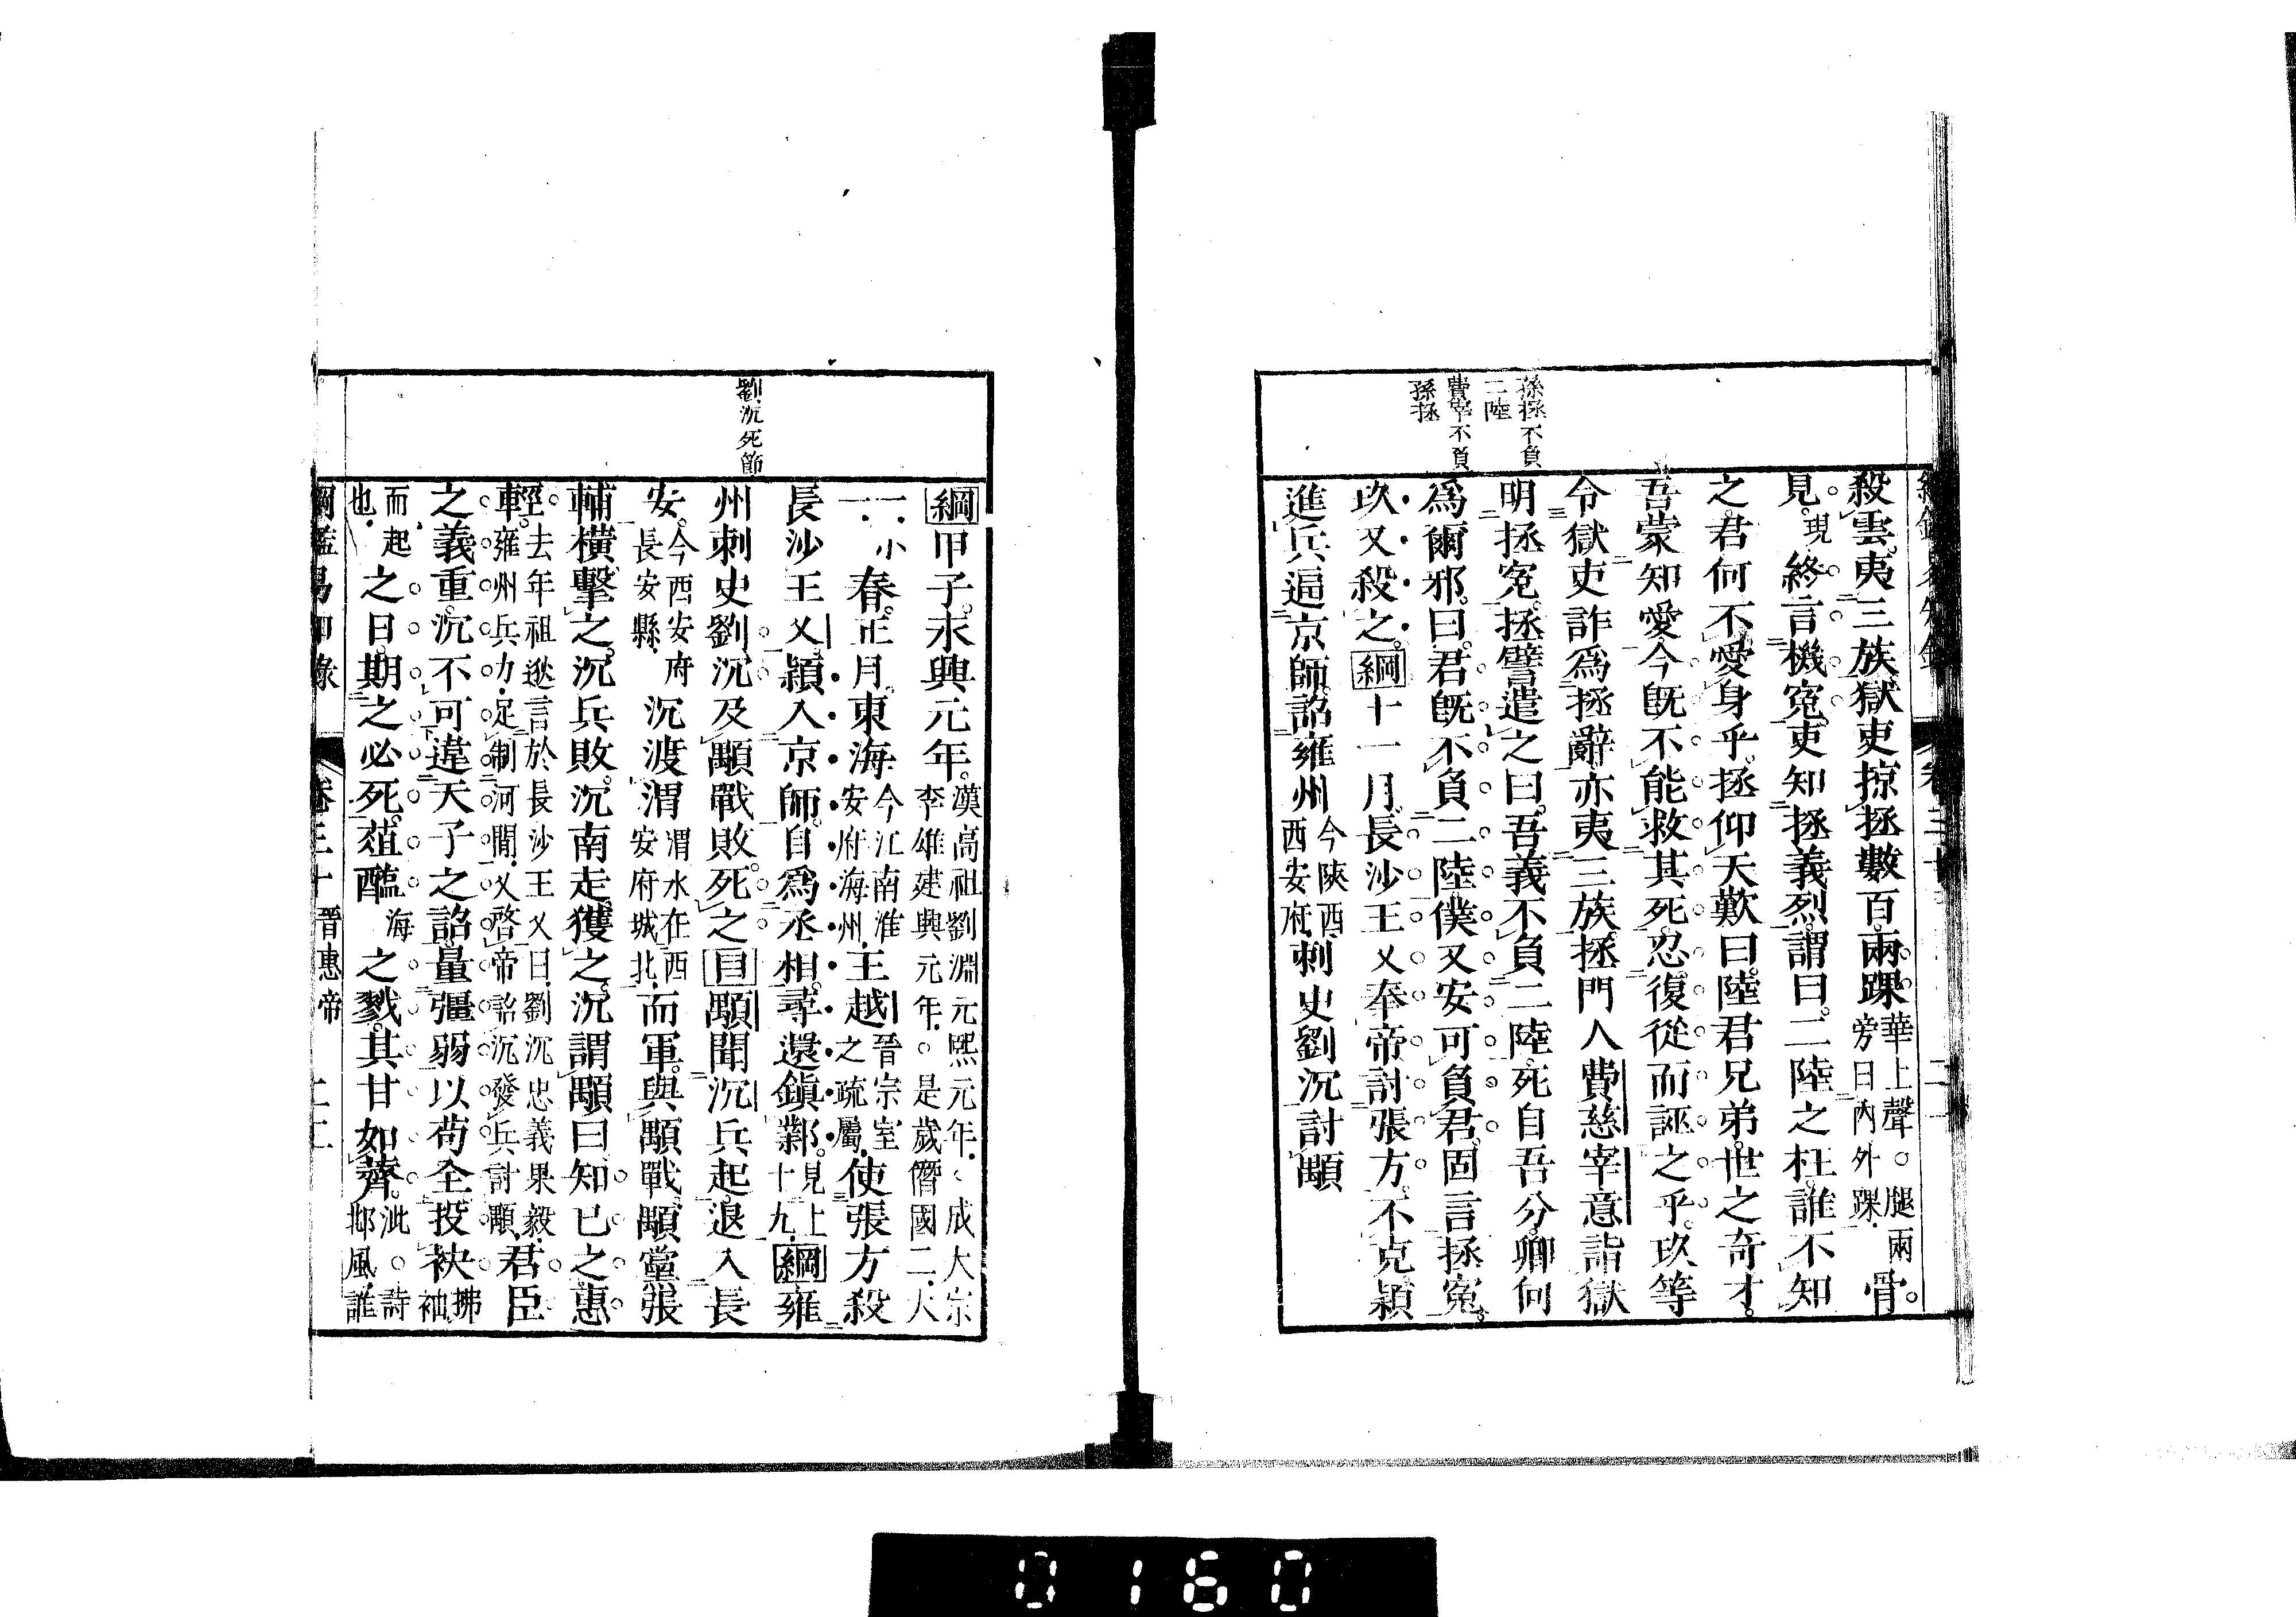 孫拯不負
二陸
費宰不負
孫拯
殺雲夷三族獄吏掠拯數百兩踝華上聲○腿兩旁曰內外踝骨
見現終言機冤吏知拯義烈謂曰二陸之枉誰不知
之君何不愛身乎拯仰天歎曰陸君兄弟世之奇才
吾蒙知愛今既不能救其死忍復從而誣之乎玖等
令獄吏詐為拯辭亦夷三族拯門人費慈宰意詣獄
明拯冤拯譬遣之曰吾義不負二陸死自吾分卿何
為爾邪曰君既不負二陸僕又安可負君固言拯冤
玖又殺之綱十一月長沙王乂奉帝討張方不克穎
進兵逼京師詔雍州今陝西西安府刺史劉沉討顒
劉沉死節
綱甲子永興元年漢高祖劉淵元熙元年○成大宗李雄建興元年○是歲僭國二大
一小一春正月東海今江南淮安府海州王越晉宗室之疏屬使張方殺
長沙王乂穎入京師自為丞相尋還鎮鄴見上十九綱雍
州刺史劉沉及顒戰敗死之目顒聞沉兵起退入長
安今西安府長安縣沉渡渭渭水在西安府城北而軍與顒戰顒黨張
輔橫擊之沉兵敗沉南走獲之沉謂顒曰知已之惠
輕去年祖逖言於長沙王乂曰劉沉忠義果毅雍州兵力足制河間乂啓帝詔沉發兵討顒君臣
之義重沉不可違天子之詔量彊弱以苟全投袂拂袖
而起也之日期之必死葅醢海之戮其甘如薺泚○詩邶風誰
綱鑑易知錄 卷三十 晉惠帝 二二